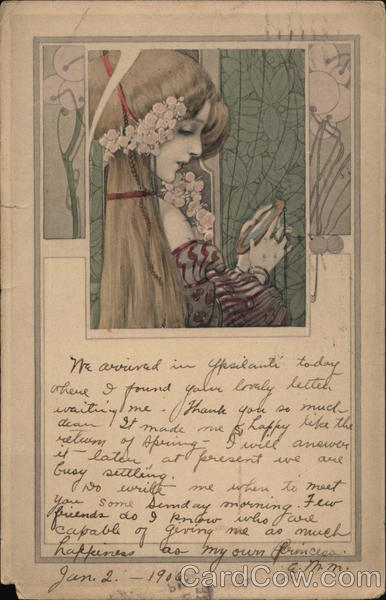 We arrived in Ypsilanti today
where I found your lovely letter
waiting me - Thank you so much
dear It made me so happy like the
return of spring - I will answer
it later at present we are
busy settling.
Do write me when to meet
you some Sunday morning. Few
friends do I know who are
capable of giving me as much
happiness as my own Princess.
Jan. 2. - 1906
CardCow.com